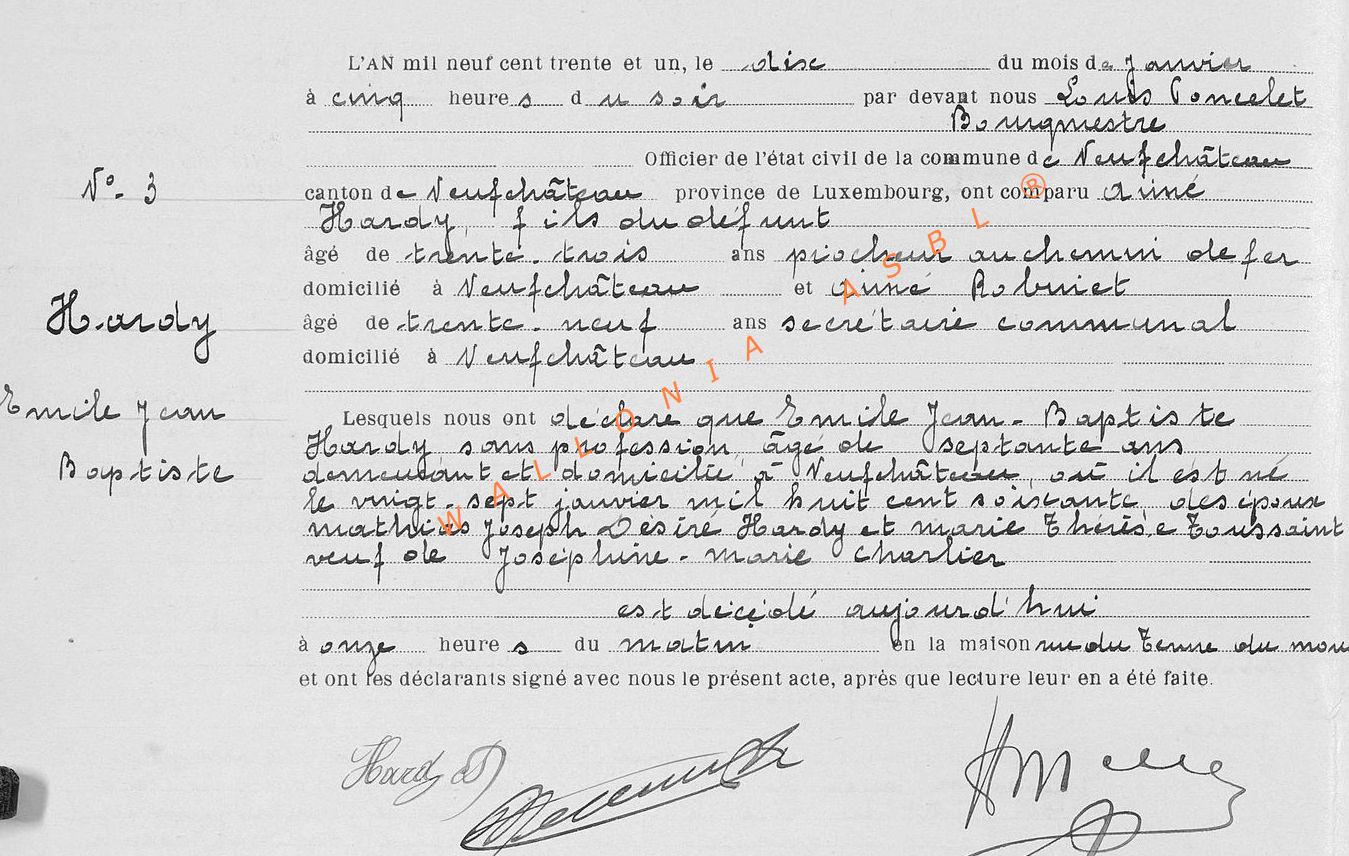 L'AN mil neuf cent trente et un, le disc du mois de janvier
à cinq heures du soir par devant nous Louis Poncelet
Bourgmestre
Officier de l'état civil de la commune de Neufchâteau
N° 3
canton de Neufchâteau province de Luxembourg, ont comparu Aimé
Hardy, fils du défunt
âgé de trente-trois ans piocheur au chemin de fer
domicilié à Neufchâteau et Aimé
âgé de trente-neuf ans secrétaire communal
domicilié à Neufchâteau
Hardy
Emile Jean
Baptiste
Lesquels nous ont déclaré que Emile Jean-Baptiste
Hardy, sans profession, âgé de septante ans
demeurant et domicilié à Neufchâteau, où il est né
le vingt-sept janvier mil huit cent soixante, des époux
Mathias Joseph Désiré Hardy et Marie Thérèse Toussaint
veuf de Joséphine-Marie Charlier
est décédé aujourd'hui
à onze heures du matin en la maison rue du
et ont les déclarants signé avec nous le présent acte, après que lecture leur en a été faite.
Hardy
WALLONIA ASBL ®